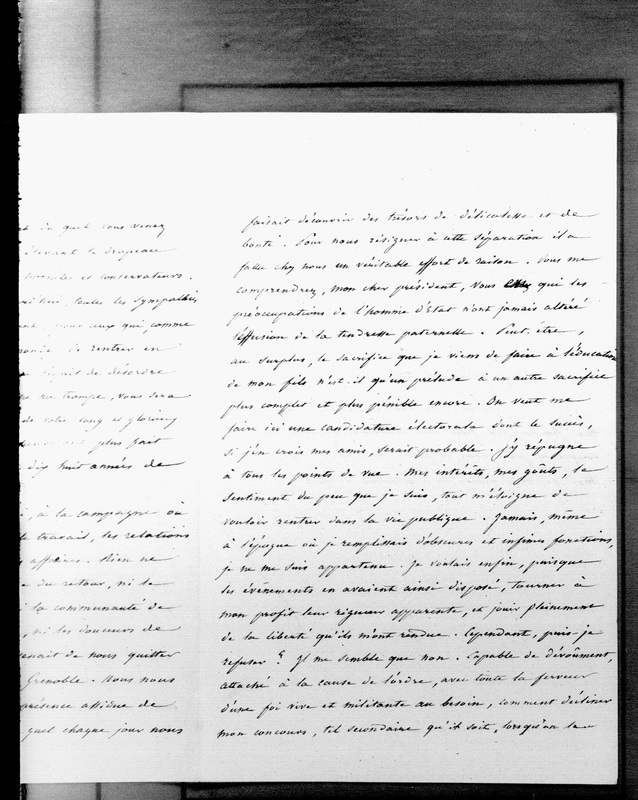 et du quel vous venez
élevant le drapeau
et conservateurs.
toutes les sympathies
pour ceux qui comme
de rentrer en
esprit de désordre
me trompe, vous sera
de votre long et glorieux
plus fait
dix huit années de
, à la campagne où
le travail, les relations
affaires. Rien ne
du retour, ni la
la communauté de
, ni les douceurs de
venait de nous quitter
Grenoble. Nous nous
présence assidue de
quel chaque jour nous
faisait découvrir des trésors de délicatesse et de
bonté. Pour nous résigner à cette séparation il a
fallu chez nous un véritable effort de raison. Vous me
comprendrez, mon cher président, vous chez qui les
préoccupations de l'homme d'Etat n'ont jamais altéré
l'effusion de la tendresse paternelle. Peut-être,
au surplus, le sacrifice que je viens de faire à l'éducation
de mon fils n'est-il qu'un prélude à un autre sacrifice
plus complet et plus pénible encore. On veut me
faire ici une candidature électorale dont le succès,
si j'en crois mes amis, serait probable. J'y répugne
à tous les points de vue. Mes intérêts, mes goûts, le
sentiment du peu que je suis, tout m'éloigne de
vouloir rentrer dans la vie publique. Jamais, même
à l'époque où je remplissais d'obscures et infimes fonctions,
je ne me suis appartenu. Je voulais enfin, puisque
les événements en avaient ainsi disposé, tourner à
mon profit leur rigueur apparente, et jouir pleinement
de la liberté qu'ils m'ont rendue. Cependant, puis-je
refuser? Il me semble que non. Capable de dévoûment,
attaché à la cause de l'ordre, avec toute la ferveur
d'une foi vive et militante au besoin, comment décliner
mon concours, tel secondaire qu'il soit, lorsqu'on le